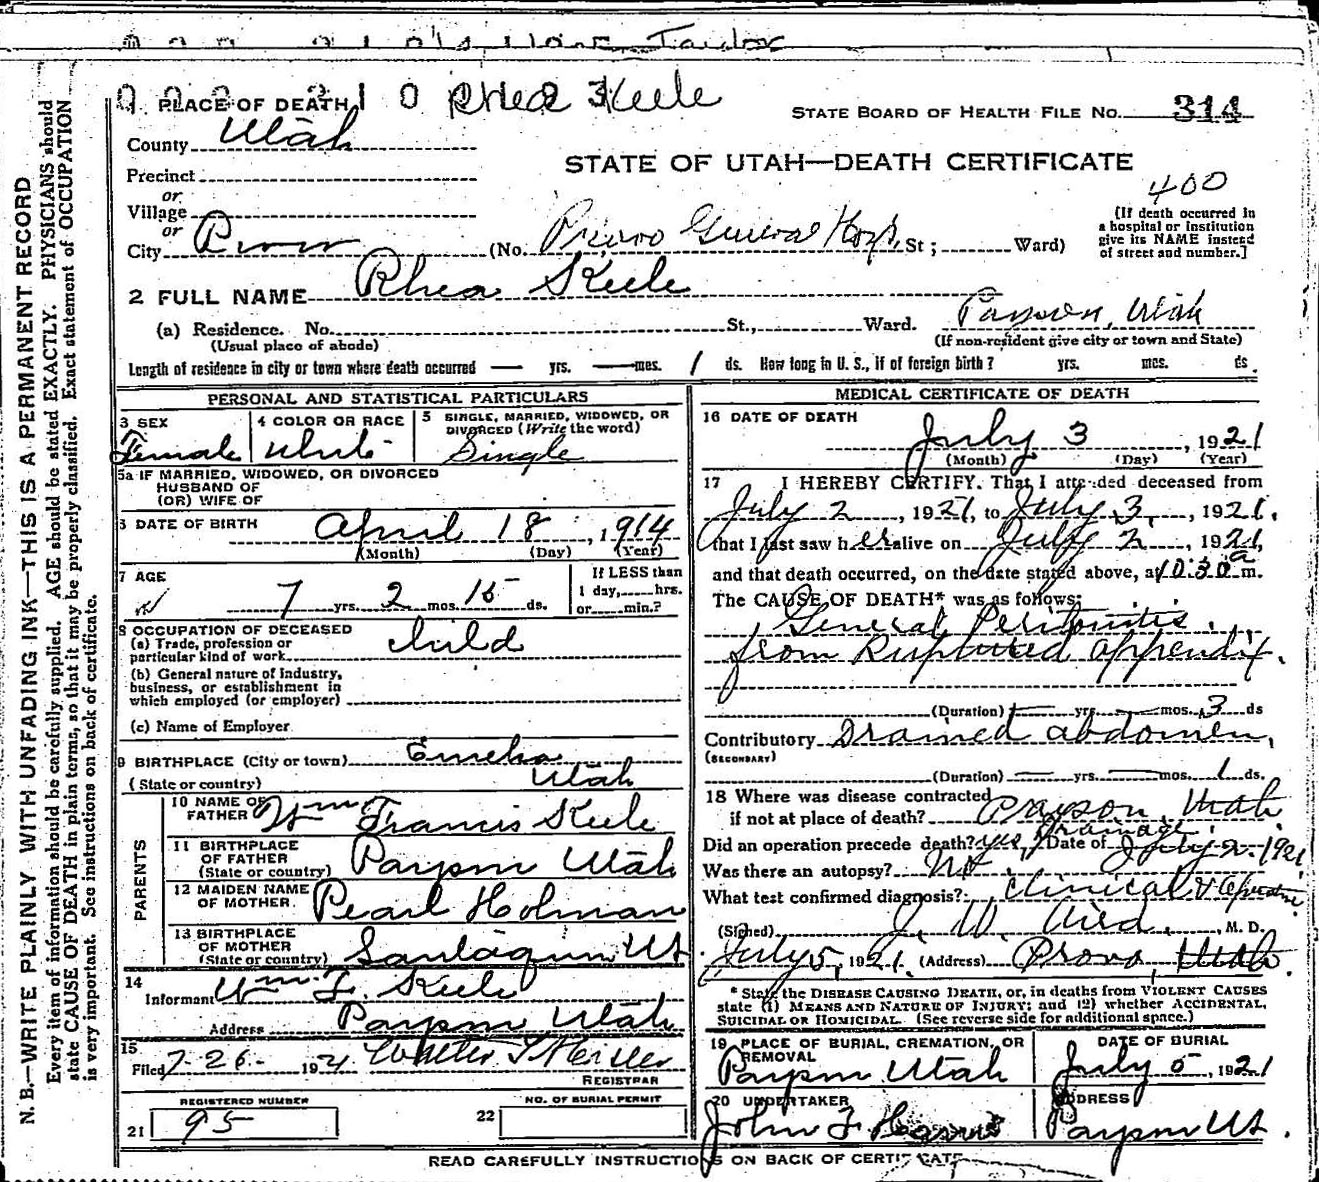 Rhea Keele
PLACE OF DEATH
STATE BOARD OF HEALTH FILE No. 314
County Utah
STATE OF UTAH—DEATH CERTIFICATE
Precinct
400
or
Village
or
(If death occurred in
a hospital or institution
give its NAME instead
of street and number.]
City Provo (No. Provo General Hosp. St; Ward)
2 FULL NAME Rhea Keele
(a) Residence. No. St., Ward. Payson, Utah
(Usual place of abode) (If non-resident give city or town and State)
Length of residence in city or town where death occurred — yrs. — mos. 1 ds. How long in U. S., if of foreign birth? yrs. mos. ds.
PERSONAL AND STATISTICAL PARTICULARS
3 SEX Female
4 COLOR OR RACE White
5 SINGLE, MARRIED, WIDOWED, OR
DIVORCED (Write the word)
Single
5a IF MARRIED, WIDOWED, OR DIVORCED
HUSBAND OF
(OR) WIFE OF
6 DATE OF BIRTH April 18, 1914
(Month) (Day) (Year)
7 AGE
7 yrs. 2 mos. 15 ds.
If LESS than
1 day, hrs.
or min.?
8 OCCUPATION OF DECEASED
(a) Trade, profession or
particular kind of work child
(b) General nature of industry,
business, or establishment in
which employed (or employer)
(c) Name of Employer
9 BIRTHPLACE (City or town)
(State or country) Utah
PARENTS
10 NAME OF
FATHER Wm Francis Keele
11 BIRTHPLACE
OF FATHER
(State or country) Payson Utah
12 MAIDEN NAME
OF MOTHER Pearl Holman
13 BIRTHPLACE
OF MOTHER
(State or country) Santaquin Ut
14
Informant Wm F. Keele
Address Payson Utah
15
Filed 7-26- 1921 Walter T
REGISTRAR
REGISTERED NUMBER
21 95
NO. OF BURIAL PERMIT
22
MEDICAL CERTIFICATE OF DEATH
16 DATE OF DEATH
July 3, 1921
(Month) (Day) (Year)
17 I HEREBY CERTIFY. That I attended deceased from
July 2, 1921, to July 3, 1921.
that I last saw her alive on July 2, 1921,
and that death occurred, on the date stated above, at 10:30 a m.
The CAUSE OF DEATH* was as follows:
General Peritonitis.
from Ruptured appendix.
(Duration) — yrs. — mos. 3 ds
Contributory Drained abdomen,
(SECONDARY)
(Duration) — yrs. — mos. 1 ds.
18 Where was disease contracted
if not at place of death? Payson, Utah
Did an operation precede death? yes, Drainage. Date of July 2, 1921
Was there an autopsy? No.
What test confirmed diagnosis? Clinical &
(Signed) J. W. Aird, M. D.
July 5, 1921. (Address) Provo, Utah.
* State the DISEASE CAUSING DEATH, or, in deaths from VIOLENT CAUSES
state (1) MEANS AND NATURE OF INJURY; and (2) whether ACCIDENTAL,
SUICIDAL OR HOMICIDAL. (See reverse side for additional space.)
19 PLACE OF BURIAL, CREMATION, OR
REMOVAL
Payson Utah
DATE OF BURIAL
July 5, 1921
20 UNDERTAKER
John F.
ADDRESS
Payson Ut.
READ CAREFULLY INSTRUCTIONS ON BACK OF CERTIFICATE
N. B.—WRITE PLAINLY WITH UNFADING INK—THIS IS A PERMANENT RECORD
Every item of information should be carefully supplied. AGE should be stated EXACTLY. PHYSICIANS should
state CAUSE OF DEATH in plain terms, so that it may be properly classified. Exact statement of OCCUPATION
is very important. See instructions on back of certificate.